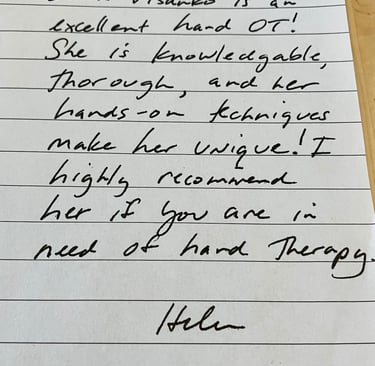 is an
excellent hand OT!
She is knowledgable,
thorough, and her
hands-on techniques
make her unique! I
highly recommend
her if you are in
need of hand Therapy.
Helen